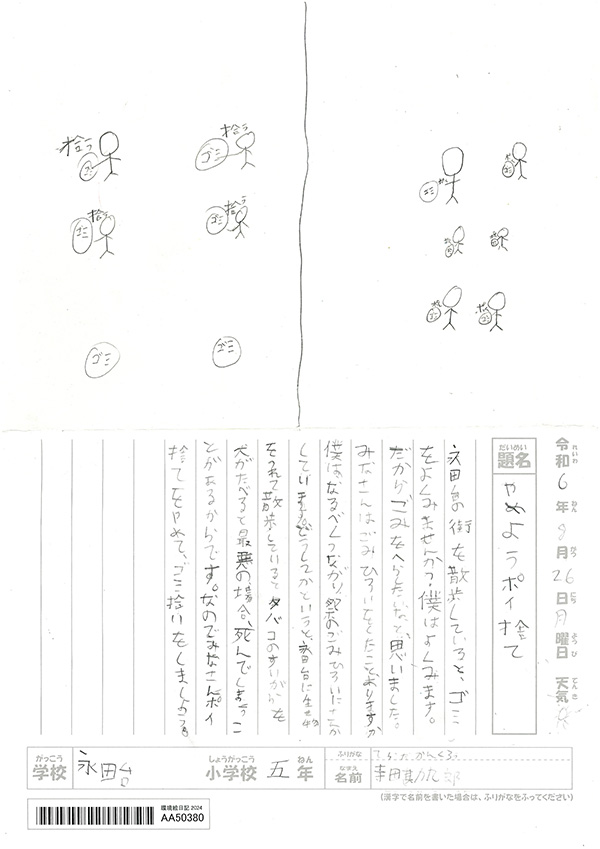 拾う
ゴミ
拾う
ゴミ
拾う
ゴミ
拾う
ゴミ
ゴミ
ゴミ
ゴミ
ゴミ
ゴミ
ゴミ
ゴミ
ゴミ
令和6年8月26日月曜日 天気
れいわ ねん がつ にち ようび てんき
だいめい
題名
やめようポイ捨て
永田台の街を散歩していると、ゴミ
をよくみませんか?僕はよくみます。
だからごみをへらしたいなと思いました。
みなさんはごみひろいをしたことありますか
僕はなるべくつながり祭のごみひろいにさんか
しています。どうしてかというと、永田台に生き物
をつれて散歩していると、タバコのすいがらを
犬がたべると最悪の場合、死んでしまうこ
とがあるからです。なのでみなさんポイ
捨てをやめて、ゴミ拾いをしましょう。
がっこう
学校
永田台
しょうがっこう
小学校
五
ねん
年
ふりがな
なまえ
名前
(漢字で名前を書いた場合は、ふりがなをふってください)
環境絵日記 2024
AA50380